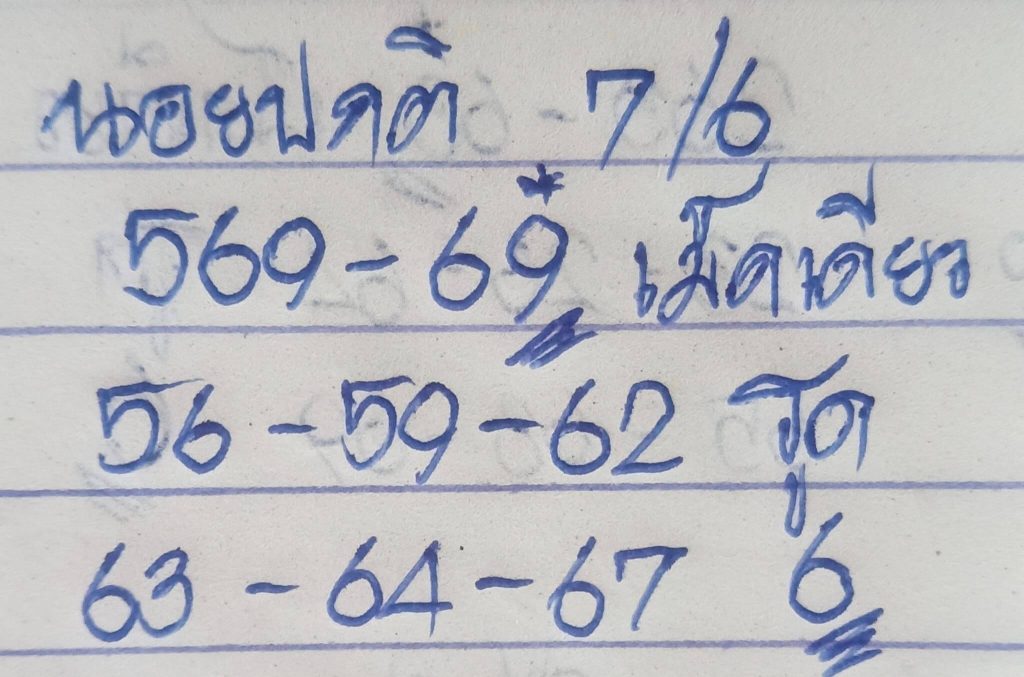 นอยปกติ 7/6
569-69* เม็ดเดียว
56-59-62 รูด
63-64-67 6